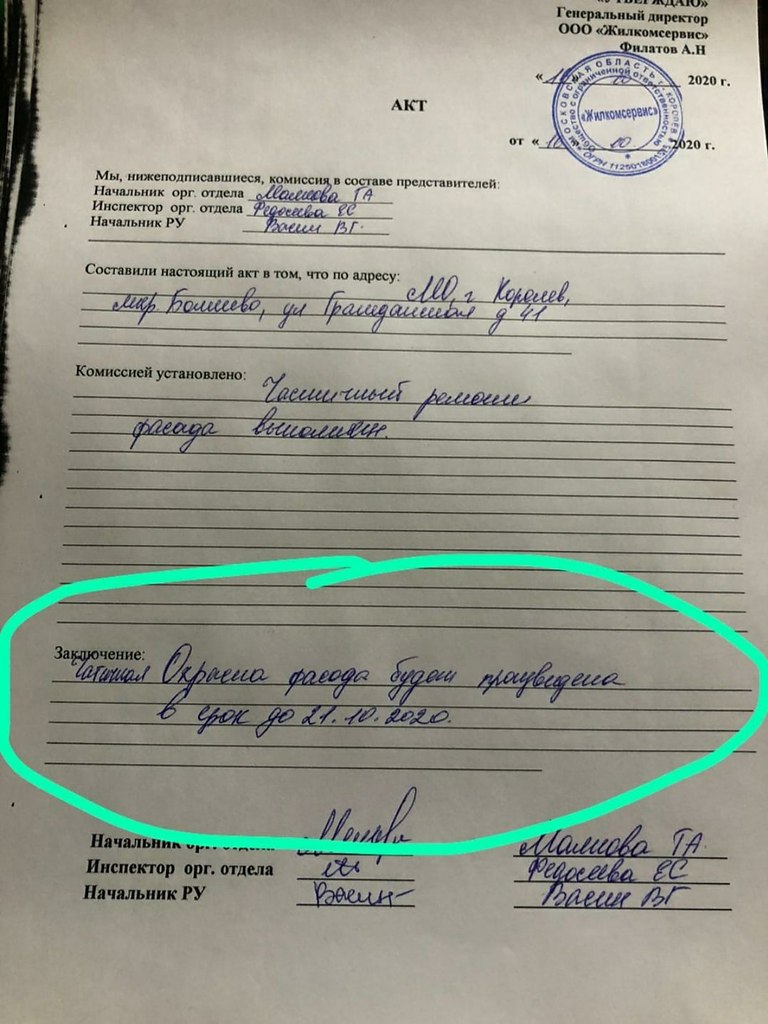 «УТВЕРЖДАЮ»
Генеральный директор
ООО «Жилкомсервис»
Филатов А.Н
«10» 10 2020 г.
АКТ
МОСКОВСКАЯ ОБЛАСТЬ, г. КОРОЛЕВ
Общество с ограниченной ответственностью
«Жилкомсервис»
от «10» 10 2020 г.
Мы, нижеподписавшиеся, комиссия в составе представителей:
Начальник орг. отдела Малкова ТА
Инспектор орг. отдела Федосеева ЕС
Начальник РУ Васин ВГ.
Составили настоящий акт в том, что по адресу: МО, г Королев,
мкр Болшево, ул Гражданская д 41
Комиссией установлено: Частичный ремонт
фасада выполнен.
Заключение:
Частичная Окраска фасада будет произведена
в срок до 21.10.2020.
Начальник орг. отдела Малкова ТА.
Инспектор орг. отдела Федосеева ЕС
Начальник РУ Васин Васин ВГ